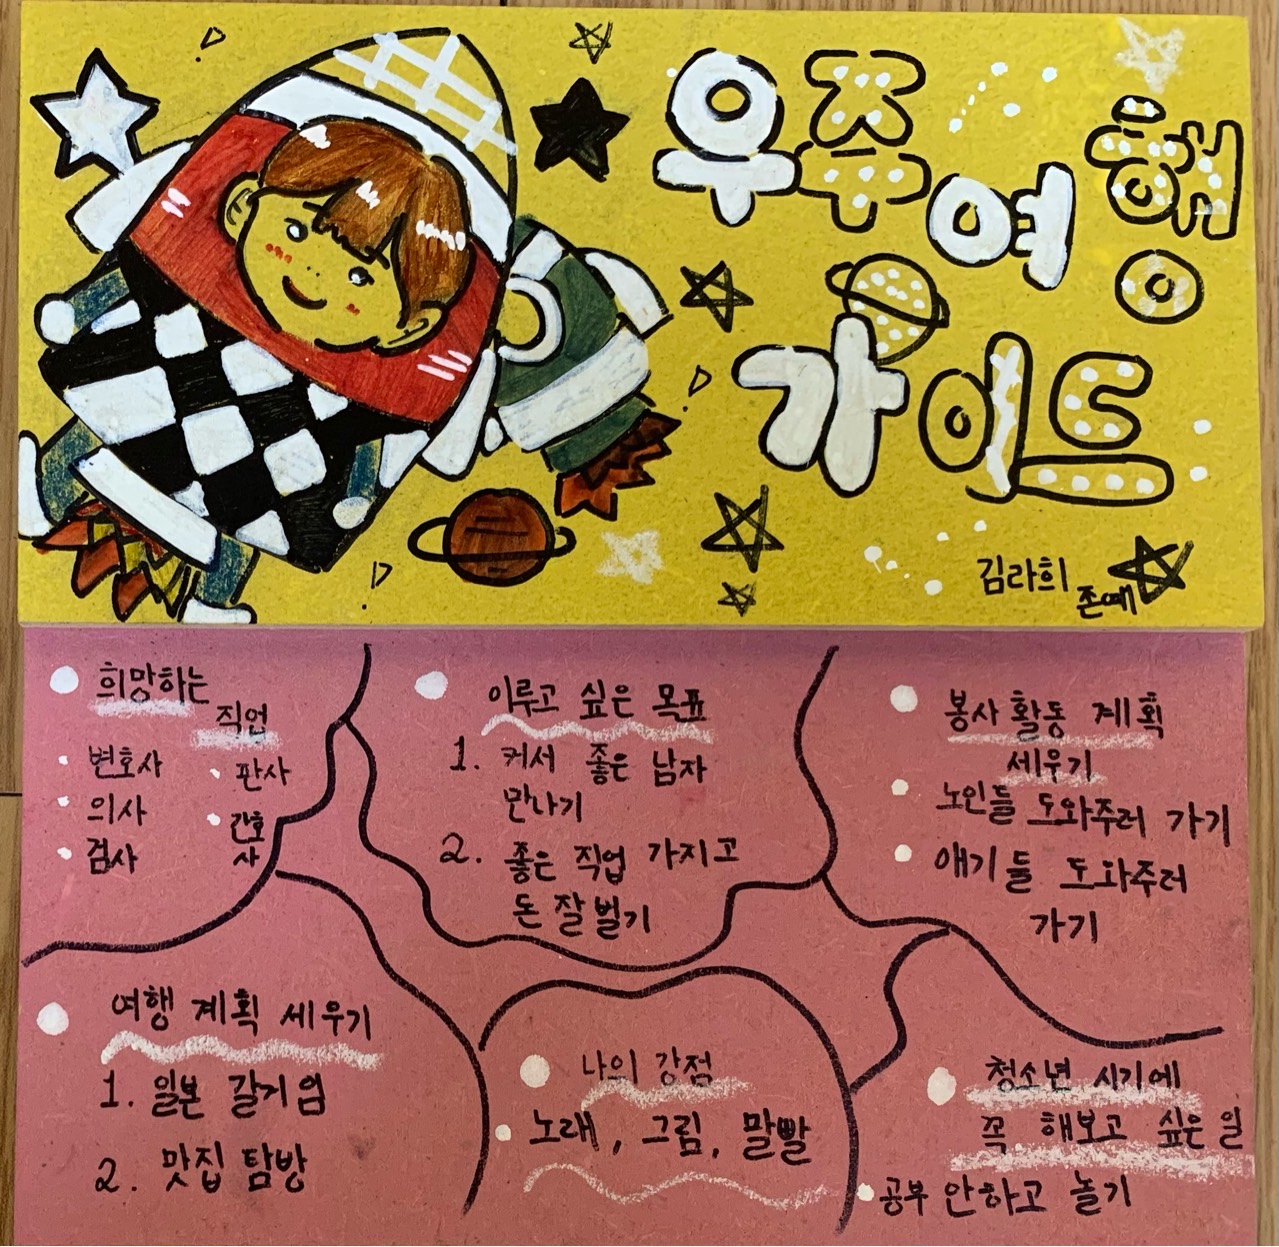 우주여행
가이드
김라희
존예
희망하는
직업
변호사
판사
의사
간호
사
검사
이루고 싶은 목표
1. 커서 좋은 남자
만나기
2. 좋은 직업 가지고
돈 잘 벌기
봉사 활동 계획
세우기
노인들 도와주러 가기
애기들 도와주러
가기
여행 계획 세우기
1. 일본 갈거염
2. 맛집 탐방
나의 강점
노래, 그림, 말빨
청소년 시기에
꼭 해보고 싶은 일
공부 안하고 놀기